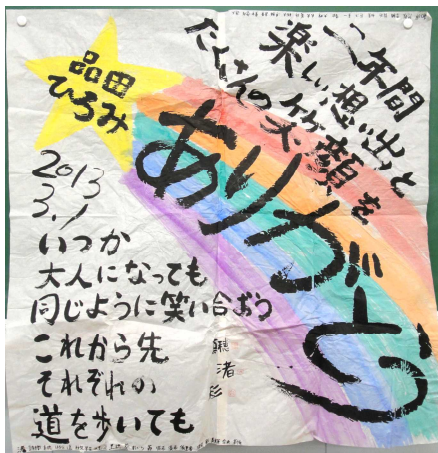 三年間
楽しい想い出と
たくさんの笑顔を
ありがとう
品田
ひろみ
2013
3.1
いつか
大人になっても
同じように笑い合おう
これから先
それぞれの
道を歩いても
渚